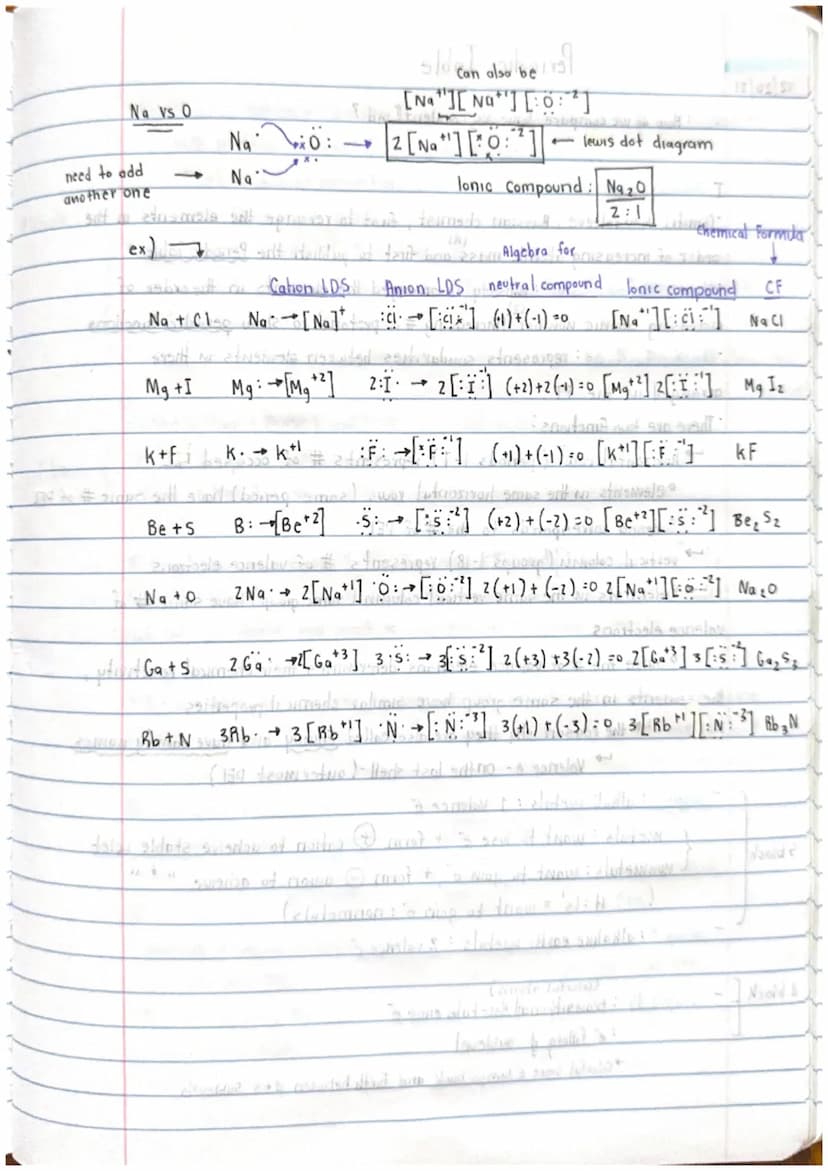 can also be
[Na⁺¹][Na⁺¹][:Ö:⁻²]
Na vs O
Na· ·Ö: → 2[Na⁺¹][:Ö:⁻²] ← lewis dot diagram
need to add another one → Na·
Ionic Compound: Na₂O
2:1
Chemical Formula
ex)
Algebra for
Cation LDS Anion LDS neutral compound Ionic compound CF
Na + Cl Na· → [Na]⁺ :Cl· → [:Clx:⁻¹] (+1)+(-1)=0 [Na⁺¹][:Cl:⁻¹] NaCl
Mg + I Mg: → [Mg⁺²] 2:I· → 2[:I:⁻¹] (+2)+2(-1)=0 [Mg⁺²] 2[:I:⁻¹] MgI₂
K+F K· → K⁺¹ :F: → [xF:⁻¹] (+1)+(-1)=0 [K⁺¹][:F:⁻¹] KF
Be + S B: → [Be⁺²] ·S: → [:S:⁻²] (+2)+(-2)=0 [Be⁺²][:S:⁻²] Be₂S₂
Na + O 2Na· → 2[Na⁺¹] ·O: → [:Ö:⁻²] 2(+1)+(-2)=0 2[Na⁺¹][:Ö:⁻²] Na₂O
Ga + S 2Ga → 2[Ga⁺³] 3·S: → 3[:S:⁻²] 2(+3)+3(-2)=0 2[Ga⁺³] 3[:S:⁻²] Ga₂S₃
Rb + N 3Rb· → 3[Rb⁺¹] ·N· → [:N:⁻³] 3(+1)+(-3)=0 3[Rb⁺¹][:N:⁻³] Rb₃N